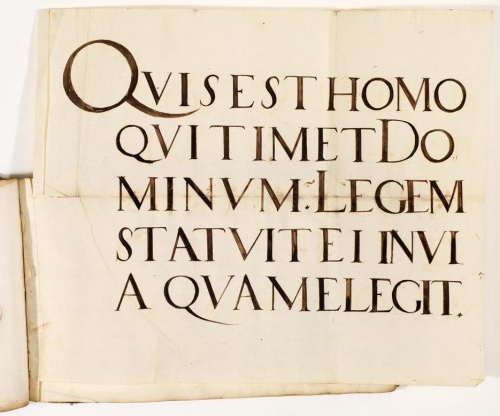 QVIS EST HOMO
QVI TIMET DO
MINVM: LEGEM
STATVIT EI IN VI
A QVAM ELEGIT.